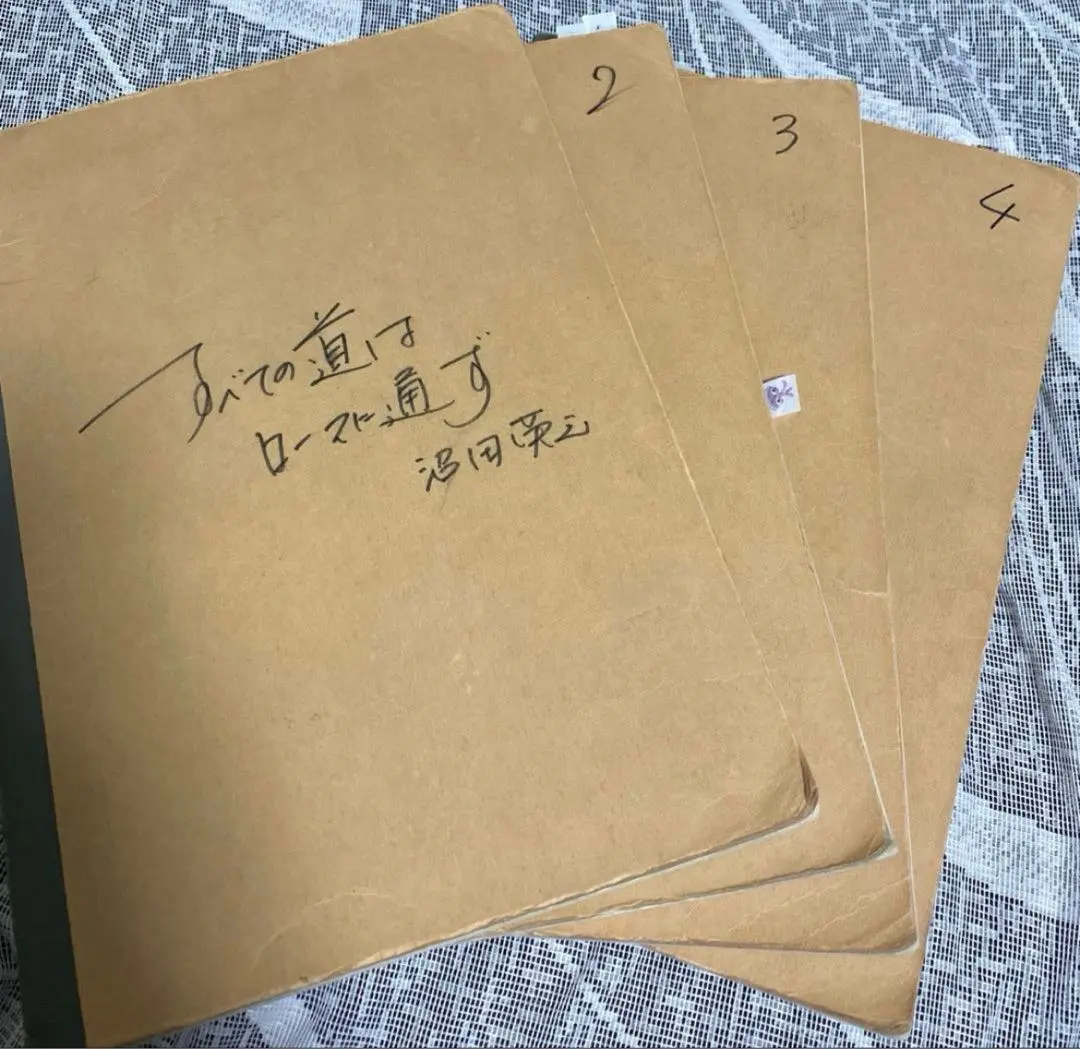 すべての道は
ロースに通ず
沼田英之
2
3
4